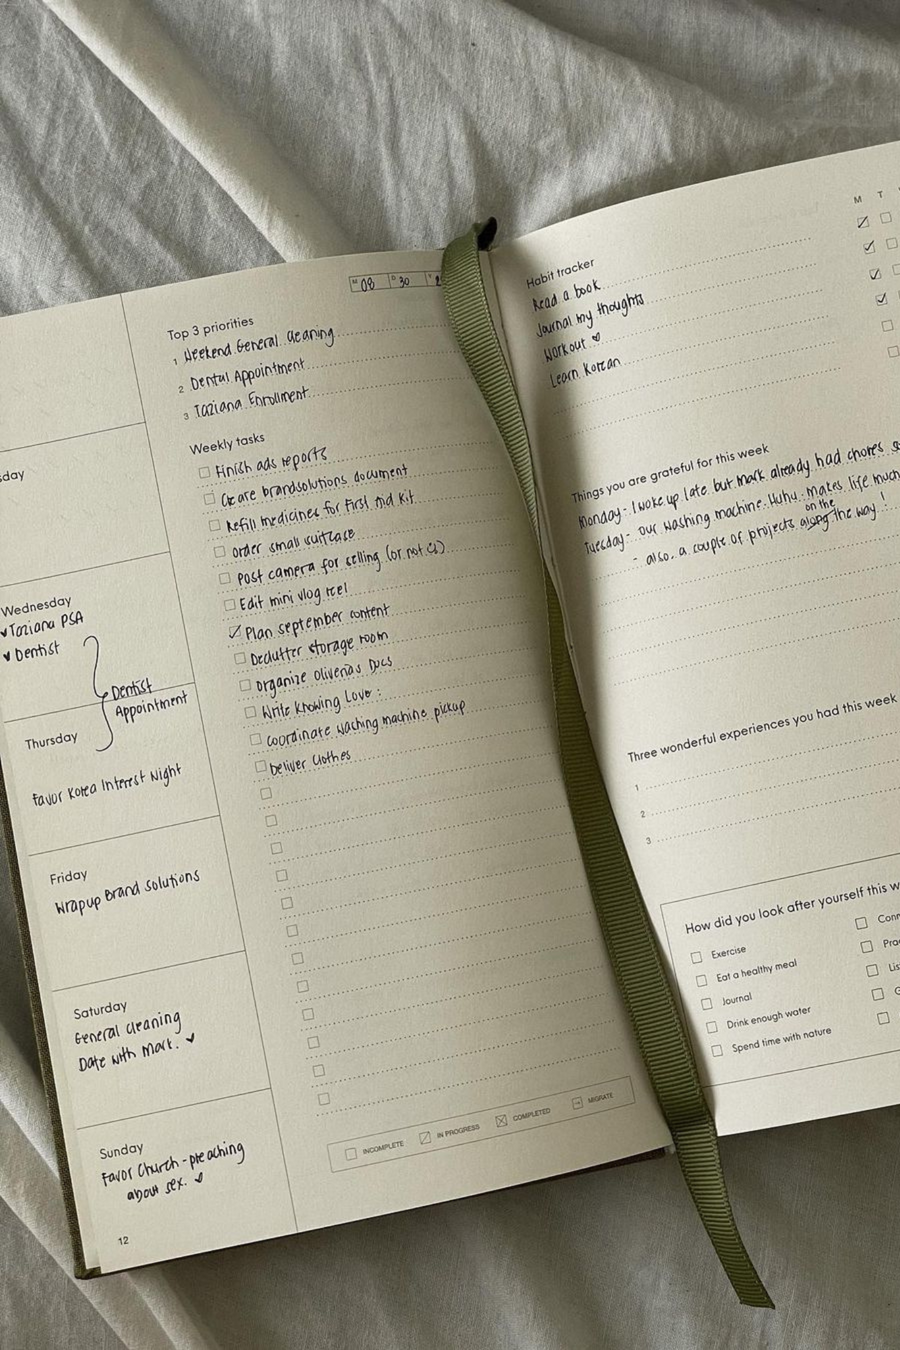 M 08 D 30 Y
Top 3 priorities
1 Weekend General Cleaning
2 Dental Appointment
3 Taziana Enrollment
Weekly tasks
Finish ads reports
Create brandsolutions document
Refill medicines for First Aid Kit
order small suitcase
Post camera for selling (or not
Edit mini vlog reel
Plan september content
Declutter storage room
Organize Docs
Write Knowing Love:
coordinate washing machine pickup
Deliver Clothes
INCOMPLETE IN PROGRESS COMPLETED MIGRATE
sday
Wednesday
Taziana PSA
Dentist
Dentist
Appointment
Thursday
Favor Korea Interest Night
Friday
Wrapup Brand Solutions
Saturday
General Cleaning
Date with Mark.
Sunday
Favor Church - preaching
about sex.
12
M T
Habit tracker
Read a book
Journal my thoughts
Workout
Learn Korean
Things you are grateful for this week
Monday - I woke up late but Mark already had chores
Tuesday - our washing machine. Huhu. makes life much
- also, a couple of projects along on the way!
Three wonderful experiences you had this week
1
2
3
How did you look after yourself this w
Exercise
Eat a healthy meal
Journal
Drink enough water
Spend time with nature
Conn
Prac
Lis
G